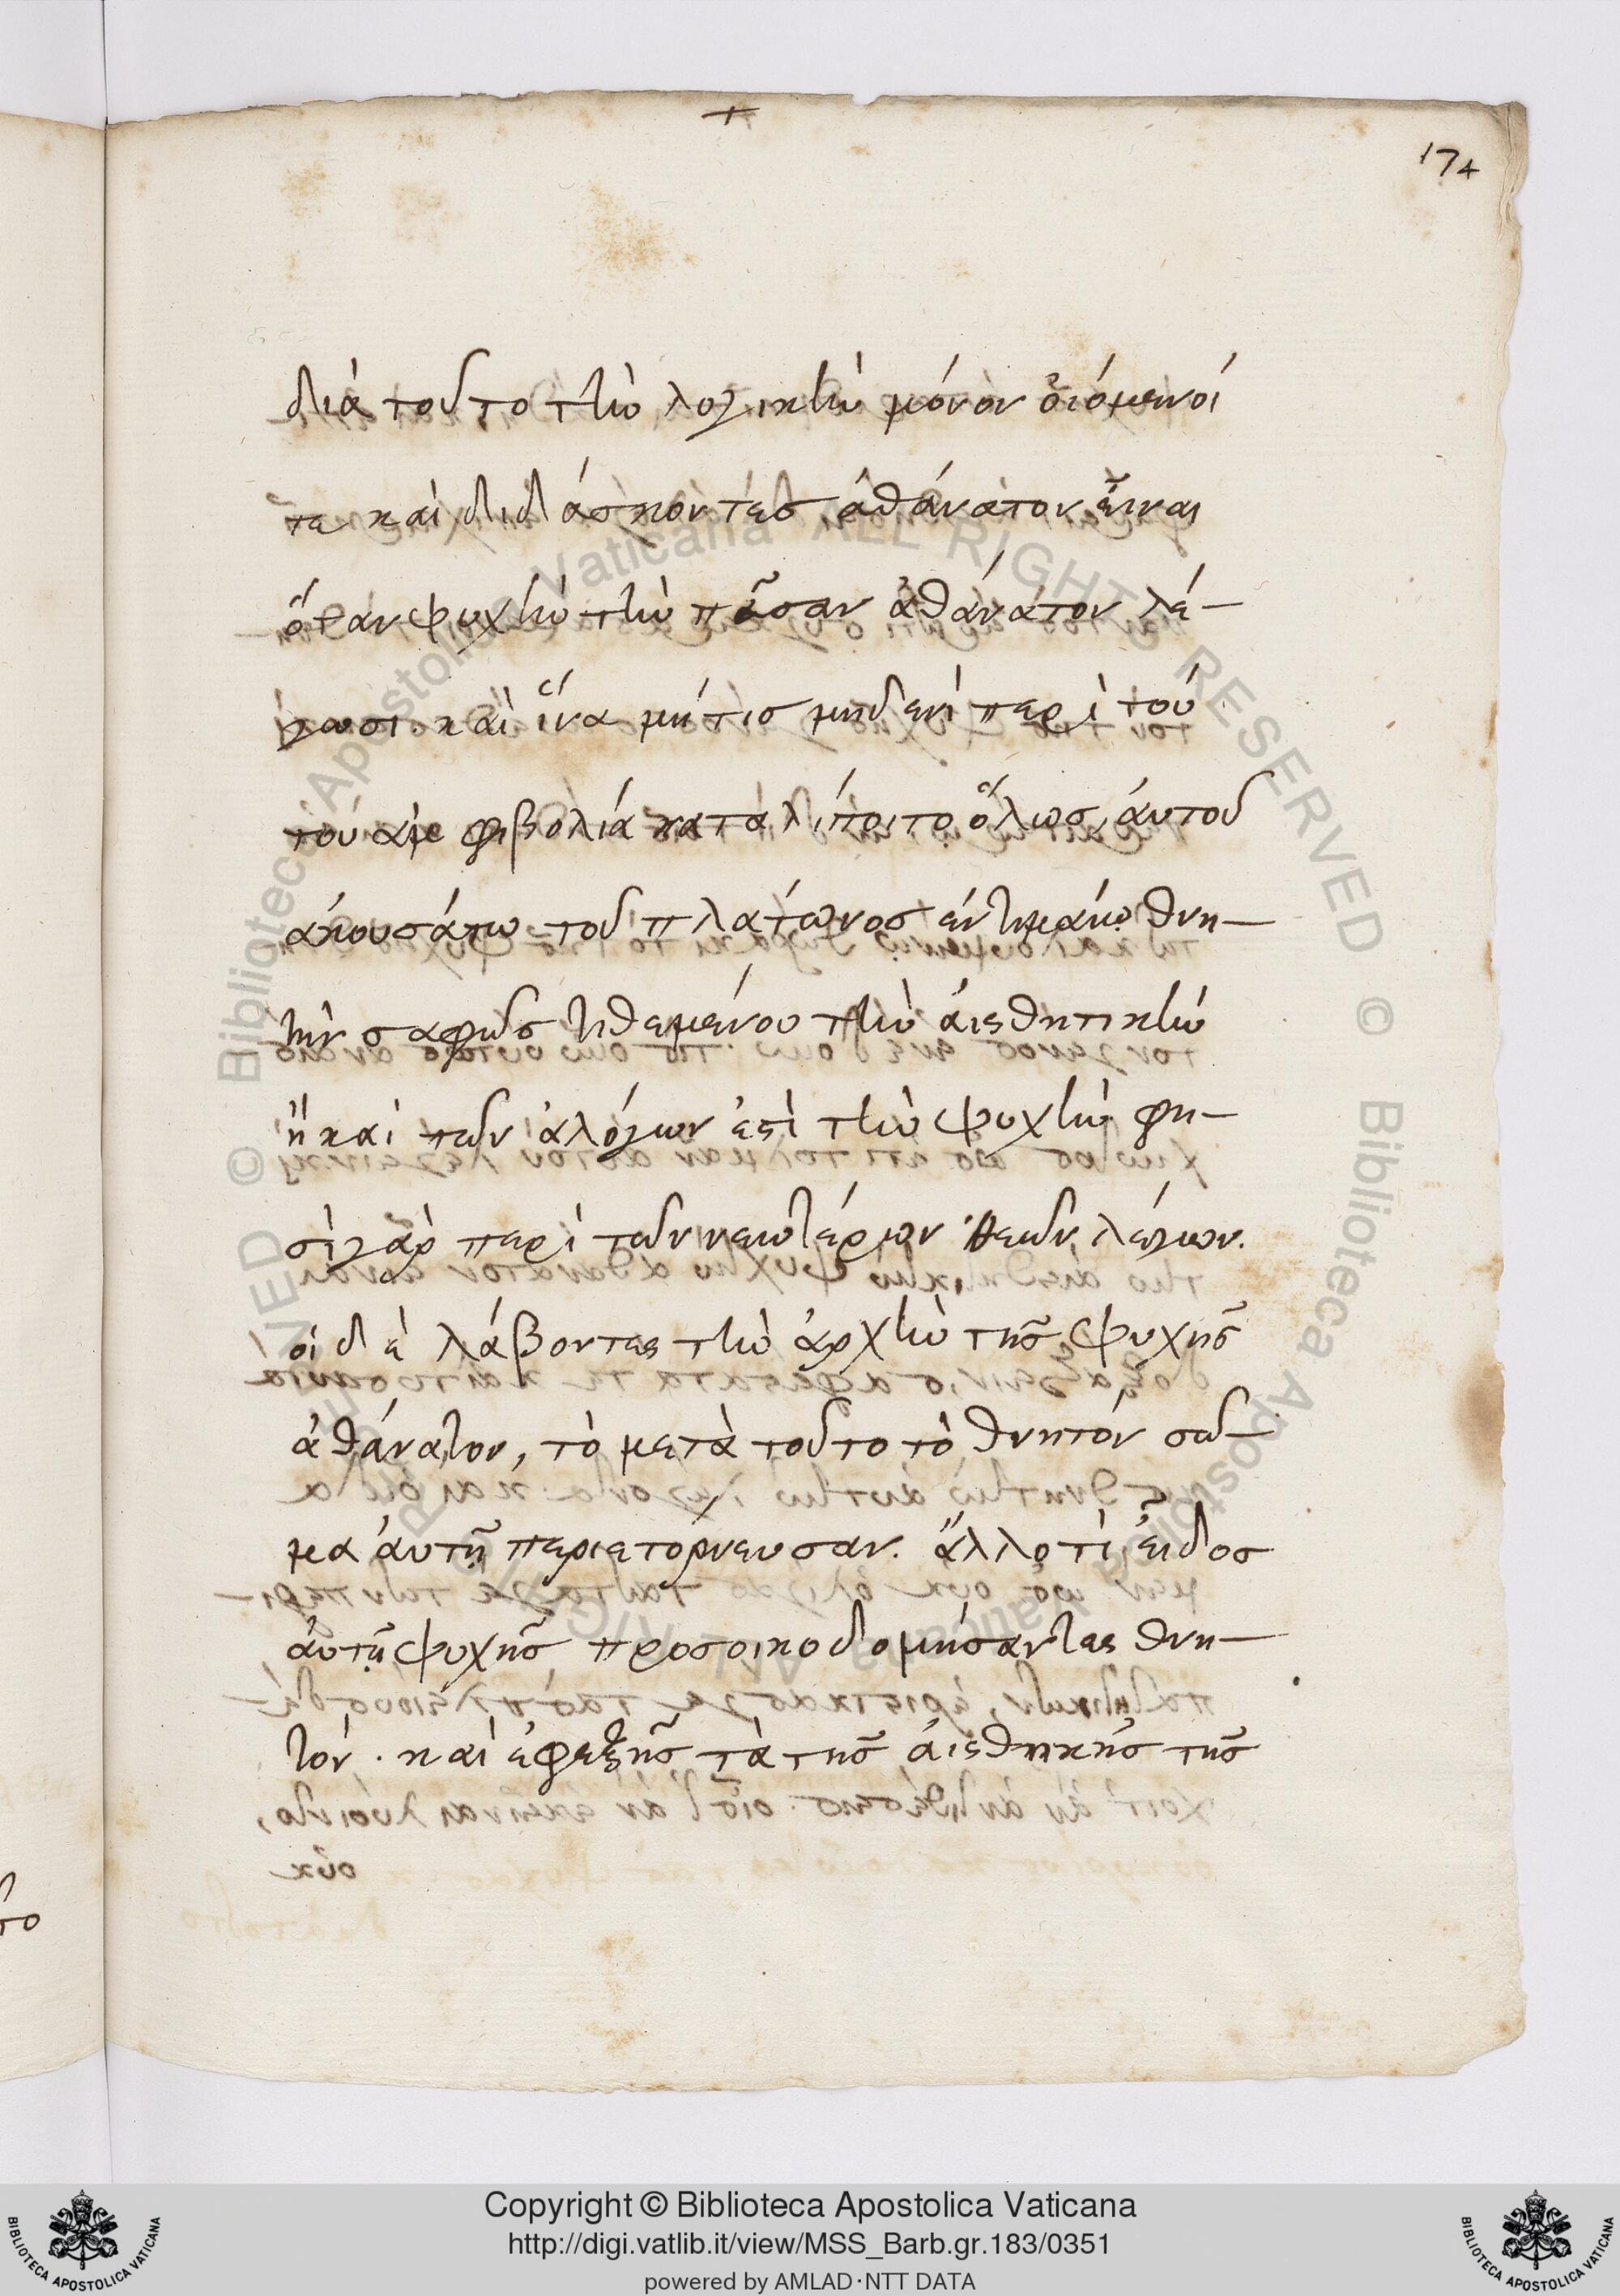 174
διὰ τοῦτο τὴν λογικὴν μόνον ὀιόμενοί
τε καὶ διδάσκοντες ἀθάνατον εἶναι
ὅταν ψυχὴν τὴν πᾶσαν ἀθάνατον λέ-
γωσι. καὶ ἵνα μήτις μηδενὶ περὶ τού
του ἀμφιβολία καταλίποιτο ὅλως, ἀυτοῦ
ἀκουσάτω τοῦ πλάτωνος ἐν τιμαίῳ θνη-
τὴν σαφῶς τιθεμένου τὴν ἀισθητικὴν
ἢ καὶ τῶν ἀλόγων ἐστὶ τὴν ψυχὴν φη-
σὶ γὰρ περὶ τῶν νεωτέρων θεῶν λέγων.
οἱ δὲ λάβοντες τὴν ἀρχὴν τῆς ψυχῆς
ἀθάνατον, τὸ μετὰ τοῦτο τὸ θνητὸν σῶ-
μα ἀυτῇ περιετορνευσαν. ἄλλο τὶ εἶδος
ἀυτῇ ψυχῆς προσοικοδομήσαντες θνη-
τόν. καὶ ἐφεξῆς τὰ τῆς ἀισθητικῆς τῆς
οὐκ
Copyright © Biblioteca Apostolica Vaticana
http://digi.vatlib.it/view/MSS_Barb.gr.183/0351
powered by AMLAD·NTT DATA
BIBLIOTECA APOSTOLICA VATICANA
BIBLIOTECA APOSTOLICA VATICANA